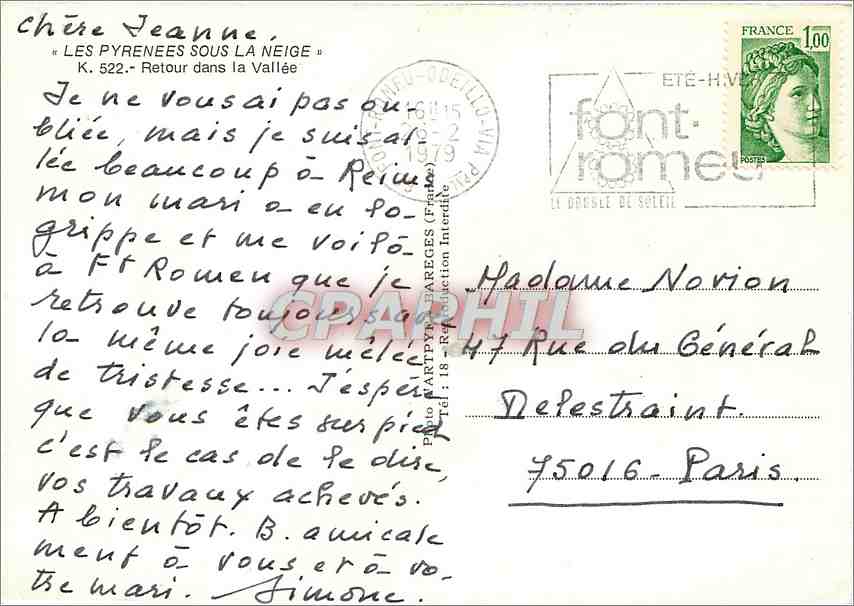 Chère Jeanne.
« LES PYRENEES SOUS LA NEIGE »
K. 522.- Retour dans la Vallée
Je ne vous ai pas ou-
bliée, mais je suis al
lée beaucoup à Reims
mon mari a eu la
grippe et me voilà
à Ft Romeu que je
retrouve toujours avec
la même joie mêlée
de tristesse... J'espère
que vous êtes sur pied
c'est le cas de le dire,
vos travaux achevés.
A bientôt. B. amicale
ment à vous et à vo-
tre mari. Simone.
FRANCE
1,00
POSTES
ROMEU-ODEILLO-VIA
16H15
-2
1979
ETE-HIV
font-
romeu
LE DOUBLE DE SOLEIL
Photo D'ARTPYR, BAREGES (France)
Tél : 18 - Reproduction Interdite
CPAPHIL
Madame Norion
47 Rue du Général
Delestraint
75016 - Paris